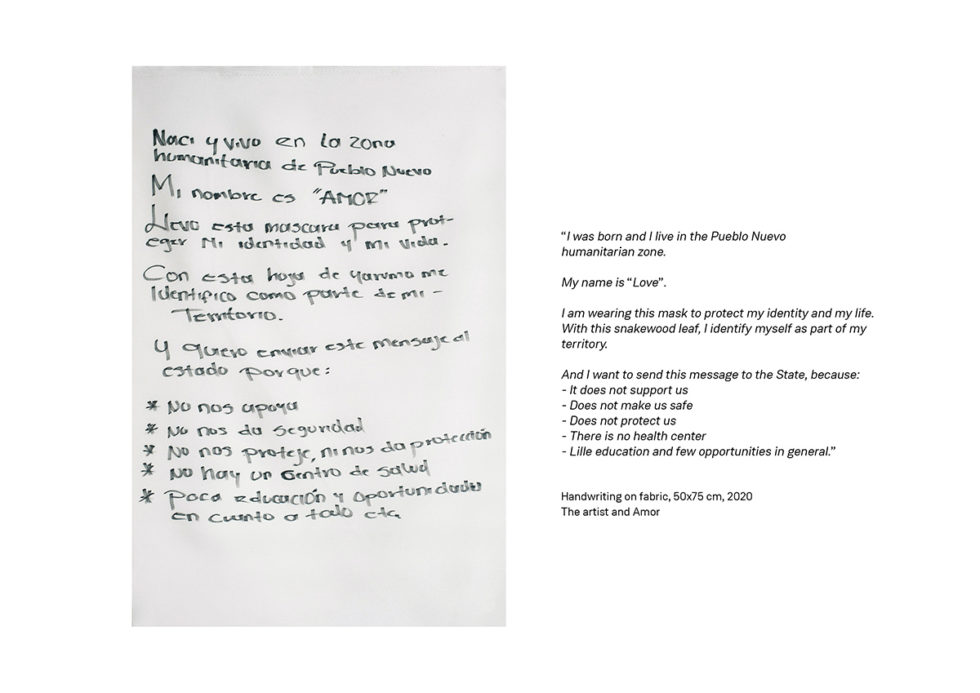 Naci y vivo en la zona
humanitaria de Pueblo Nuevo
Mi nombre es "AMOR"
Llevo esta mascara para prot-
eger Mi identidad y mi vida.
Con esta hoja de yarumo me
Identifico como parte de mi -
Territorio.
Y quiero enviar este mensaje al
estado porque:
* No nos apoya
* No nos da seguridad
* No nos proteje, ni nos da protección
* No hay un Centro de salud
* Poca educación y oportunidades
en cuanto a
"I was born and I live in the Pueblo Nuevo
humanitarian zone.
My name is "Love".
I am wearing this mask to protect my identity and my life.
With this snakewood leaf, I identify myself as part of my
territory.
And I want to send this message to the State, because:
- It does not support us
- Does not make us safe
- Does not protect us
- There is no health center
- Lille education and few opportunities in general."
Handwriting on fabric, 50x75 cm, 2020
The artist and Amor